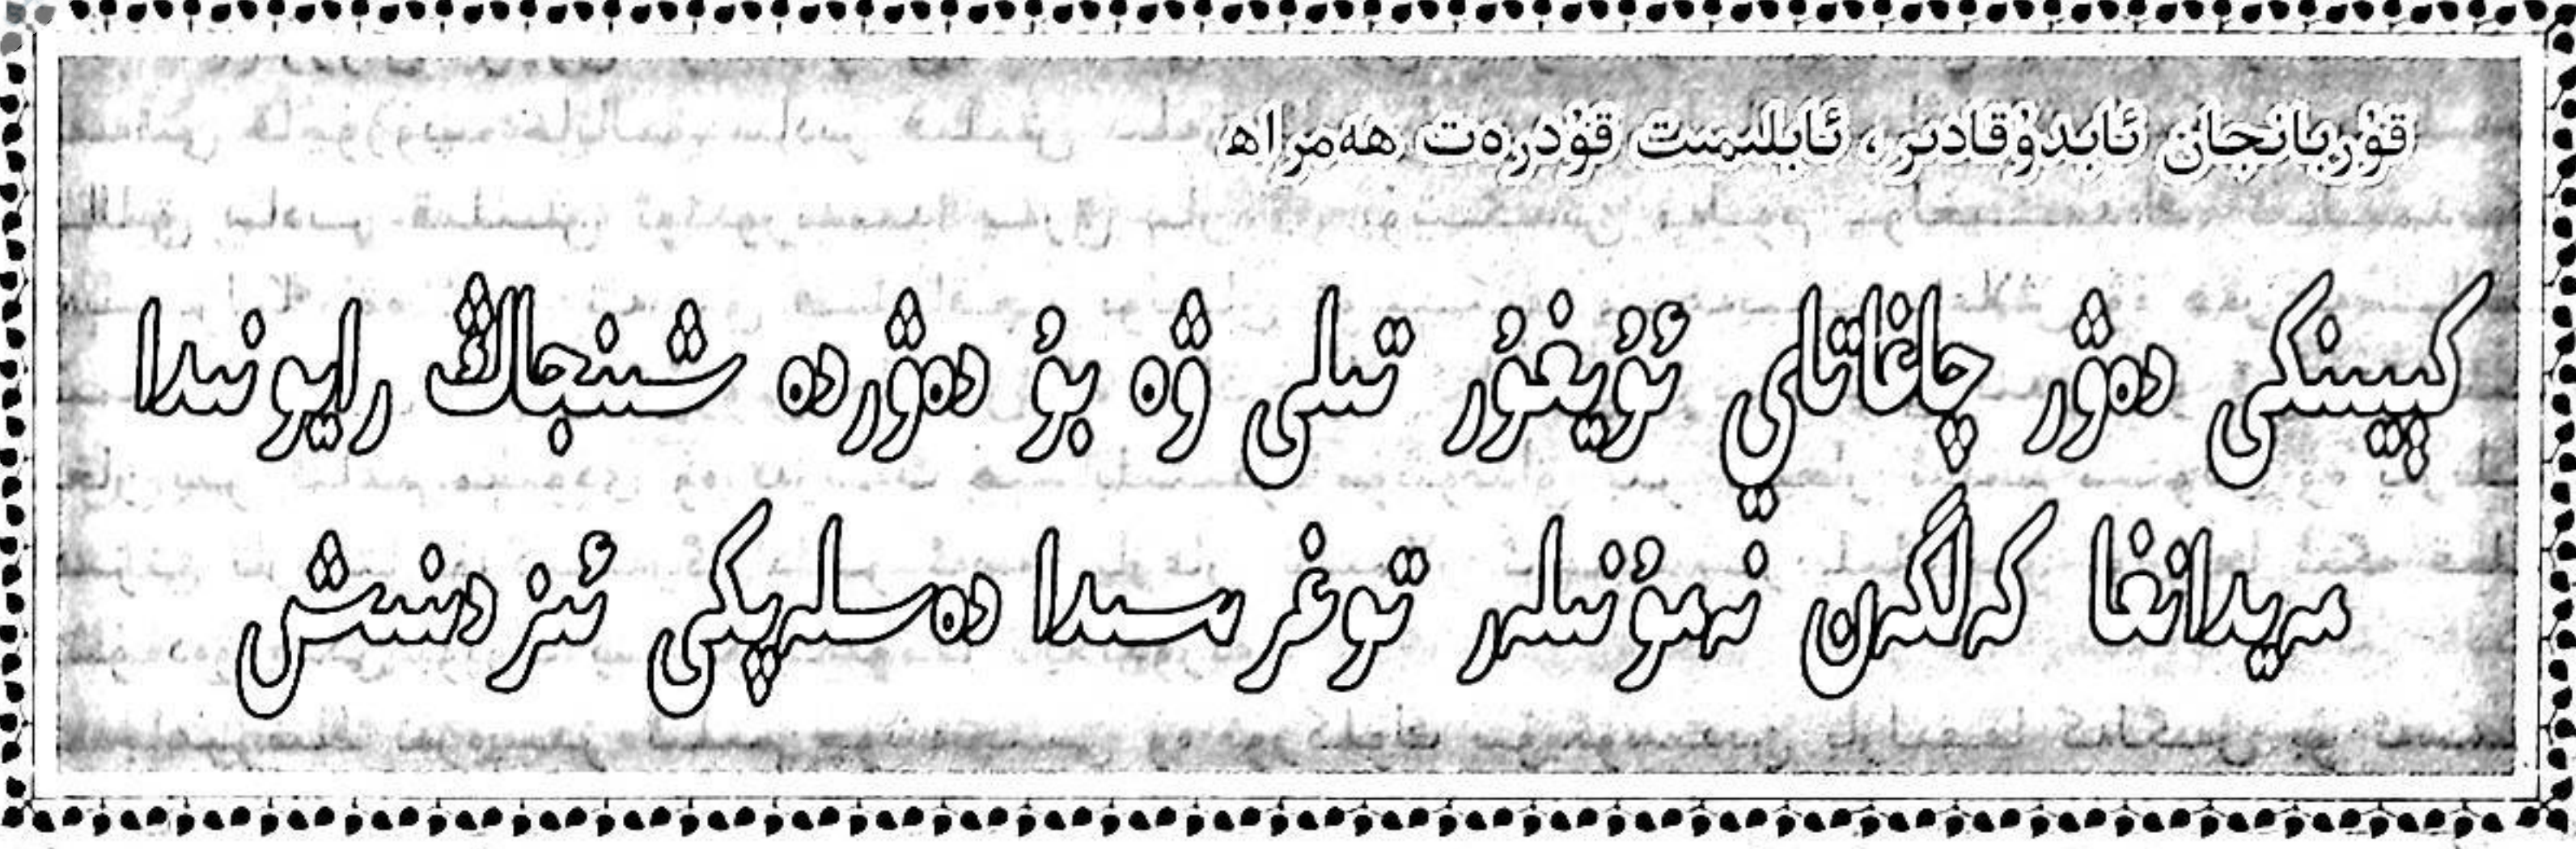 قۇربانجان ئابدۇقادىر، ئابلىمىت قۇدرەت ھەمراھ
كېيىنكى دەۋر چاغاتاي ئۇيغۇر تىلى ۋە بۇ دەۋردە شىنجاڭ رايونىدا
مەيدانغا كەلگەن نەمۇنىلەر توغرىسىدا دەسلەپكى ئىزدىنىش